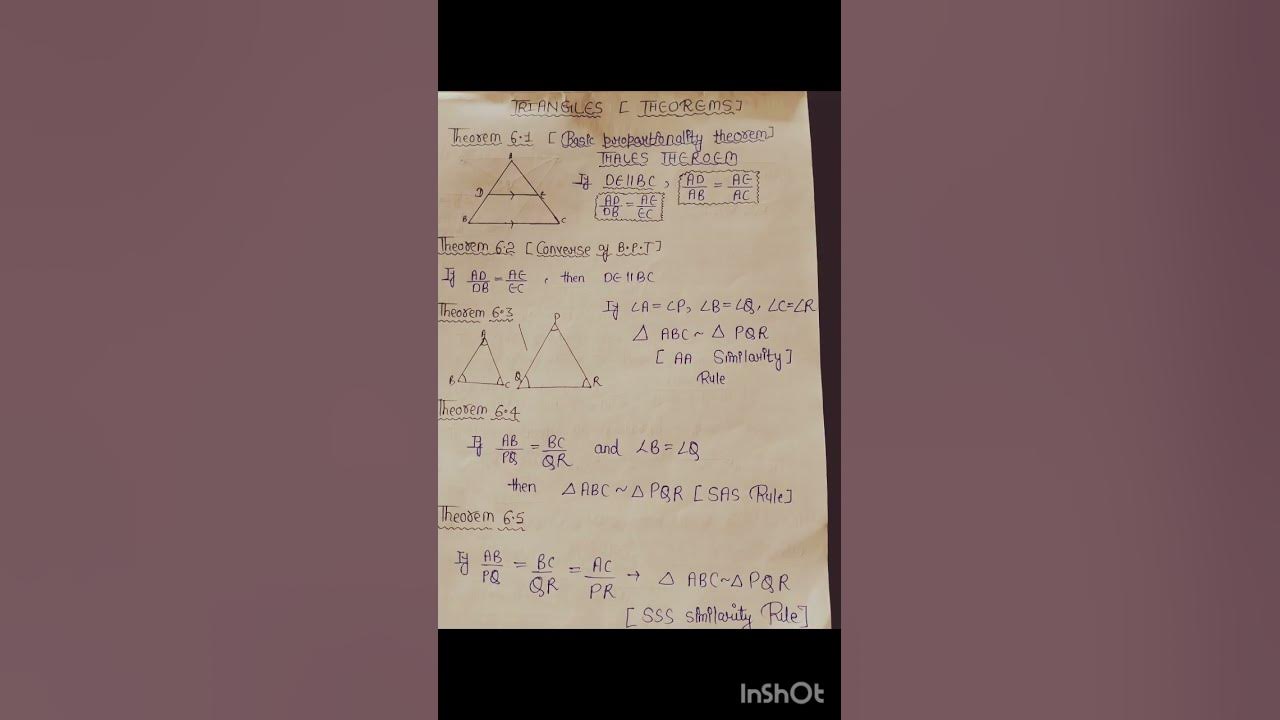 TRIANGLES [ THEOREMS]
Theorem 6.1 [ Basic proportionality theorem]
THALES THEROEM
A
D
E
B
C
If DE∥BC, AD/AB = AE/AC
AD/DB = AE/EC
Theorem 6.2 [ Converse of B.P.T]
If AD/DB = AE/EC , then DE∥BC
Theorem 6.3
If ∠A = ∠P, ∠B = ∠Q, ∠C = ∠R
△ ABC ~ △ PQR
[ AA Similarity]
Rule
A
B
C
P
Q
R
Theorem 6.4
If AB/PQ = BC/QR and ∠B = ∠Q
then △ABC ~ △PQR [ SAS Rule]
Theorem 6.5
If AB/PQ = BC/QR = AC/PR → △ ABC ~ △PQR
[ SSS similarity Rule]
InShOt